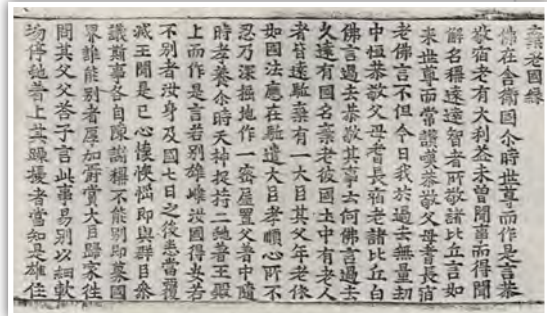 棄老國緣
佛在舍衛國尒時世尊而作是言恭
敬宿老有大利益未曾聞事而得聞
解名稱遠達智者所敬諸比丘言如
來世尊而常讚嘆恭敬父母耆長宿
老佛言不但今日我於過去無量劫
中恒恭敬父母耆長宿老諸比丘白
佛言過去恭敬其事云何佛言過去
久遠有國名棄老彼國土中有老人
者皆遠駈棄有一大臣其父年老依
如國法應在駈遣大臣孝順心所不
忍乃深掘地作一密屋置父著中隨
時孝養尒時天神捉持二虵著王殿
上而作是言若別雄雌汝國得安若
不別者汝身及國七日之後悉當覆
滅王聞是已心懷懊惱即與群臣參
議斯事各自陳謝稱不能別即募國
界誰能別者厚加爵賞大臣歸家往
問其父父荅子言此事易別以細軟
物停虵著上其躁擾者當知是雄住